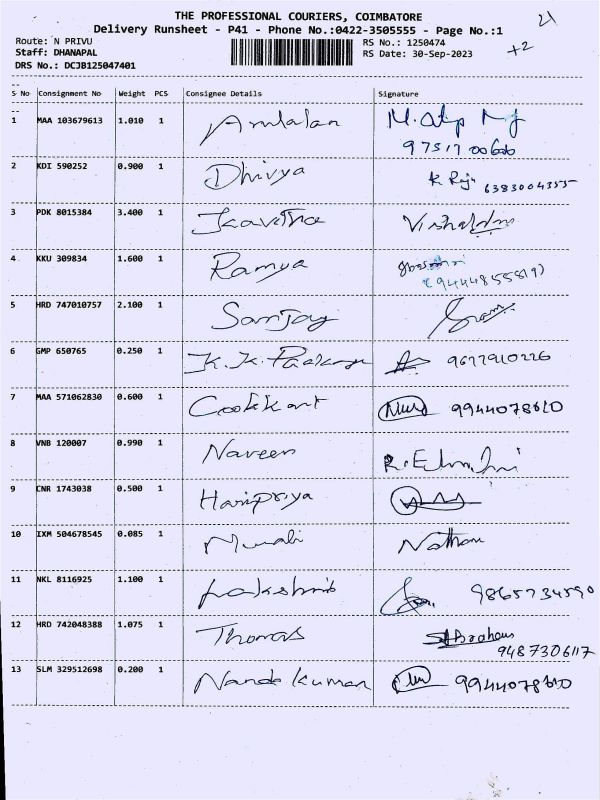 21
THE PROFESSIONAL COURIERS, COIMBATORE
Delivery Runsheet - P41 - Phone No.:0422-3505555 - Page No.:1
+2
Route: N PRIVU
RS No.: 1250474
Staff: DHANAPAL
RS Date: 30-Sep-2023
DRS No.: DCJB125047401
--
S No Consignment No Weight PCS Consignee Details Signature
--
1 MAA 103679613 1.010 1
2 KDI 590252 0.900 1 Dhivya K Raji 6383004355
3 PDK 8015384 3.400 1 Kavitha
4 KKU 309834 1.600 1 Ramya
(9444855819)
5 HRD 747010757 2.100 1 Sanjay
6 GMP 650765 0.250 1 K.K. 9677910226
7 MAA 571062830 0.600 1 Cookkart 9944078610
8 VNB 120007 0.990 1 Naveen
9 CNR 1743038 0.500 1 Haripriya
10 IXM 504678545 0.085 1 Murali Nathan
11 NKL 8116925 1.100 1 Lakshmi 9865734590
12 HRD 742048388 1.075 1 Thomas
9487306117
13 SLM 329512698 0.200 1 Nanda kumar 9944078610